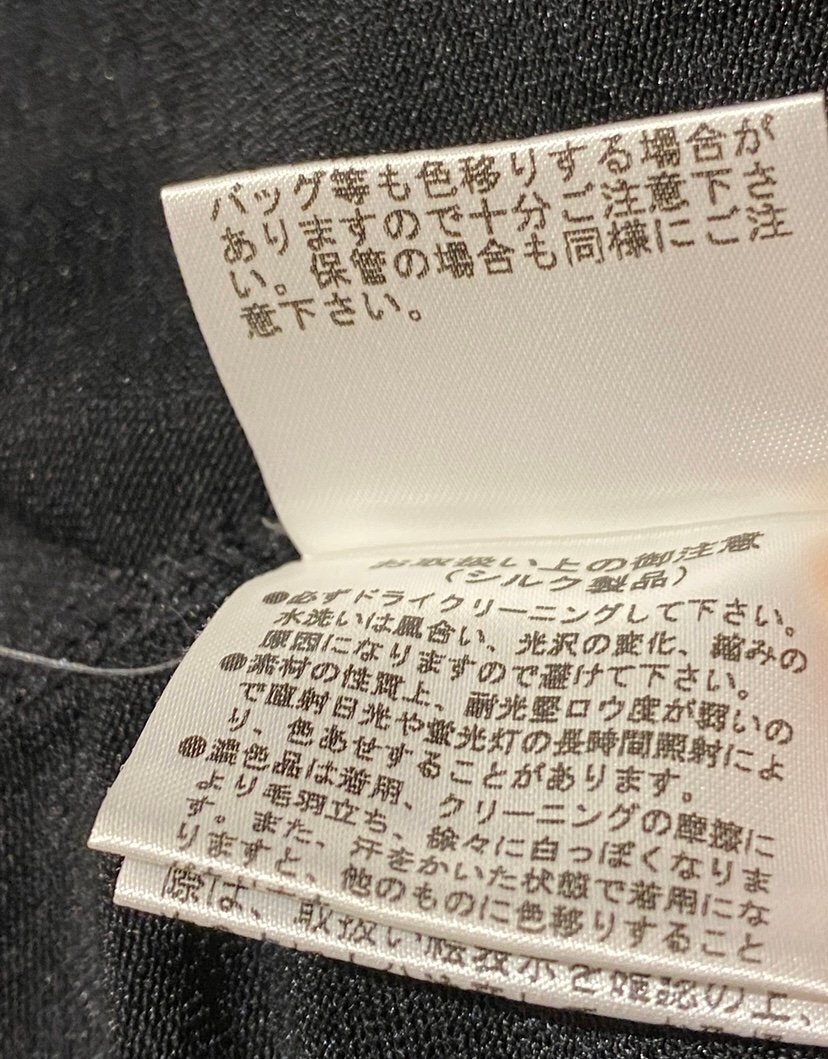 バッグ等も色移りする場合が
ありますので十分ご注意下さ
い。保管の場合も同様にご注
意下さい。
お取扱い上の御注意
(シルク製品)
●必ずドライクリーニングして下さい。
水洗いは風合い、光沢の変化、縮みの
原因になりますので避けて下さい。
●素材の性質上、耐光堅ロウ度が弱いの
で直射日光や蛍光灯の長時間照射によ
り、色あせすることがあります。
●濃色品は着用、クリーニングの摩擦に
より毛羽立ち、徐々に白っぽくなりま
す。また、汗をかいた状態で着用にな
りますと、他のものに色移りすること
際は、取扱い絵表示を確認の上、